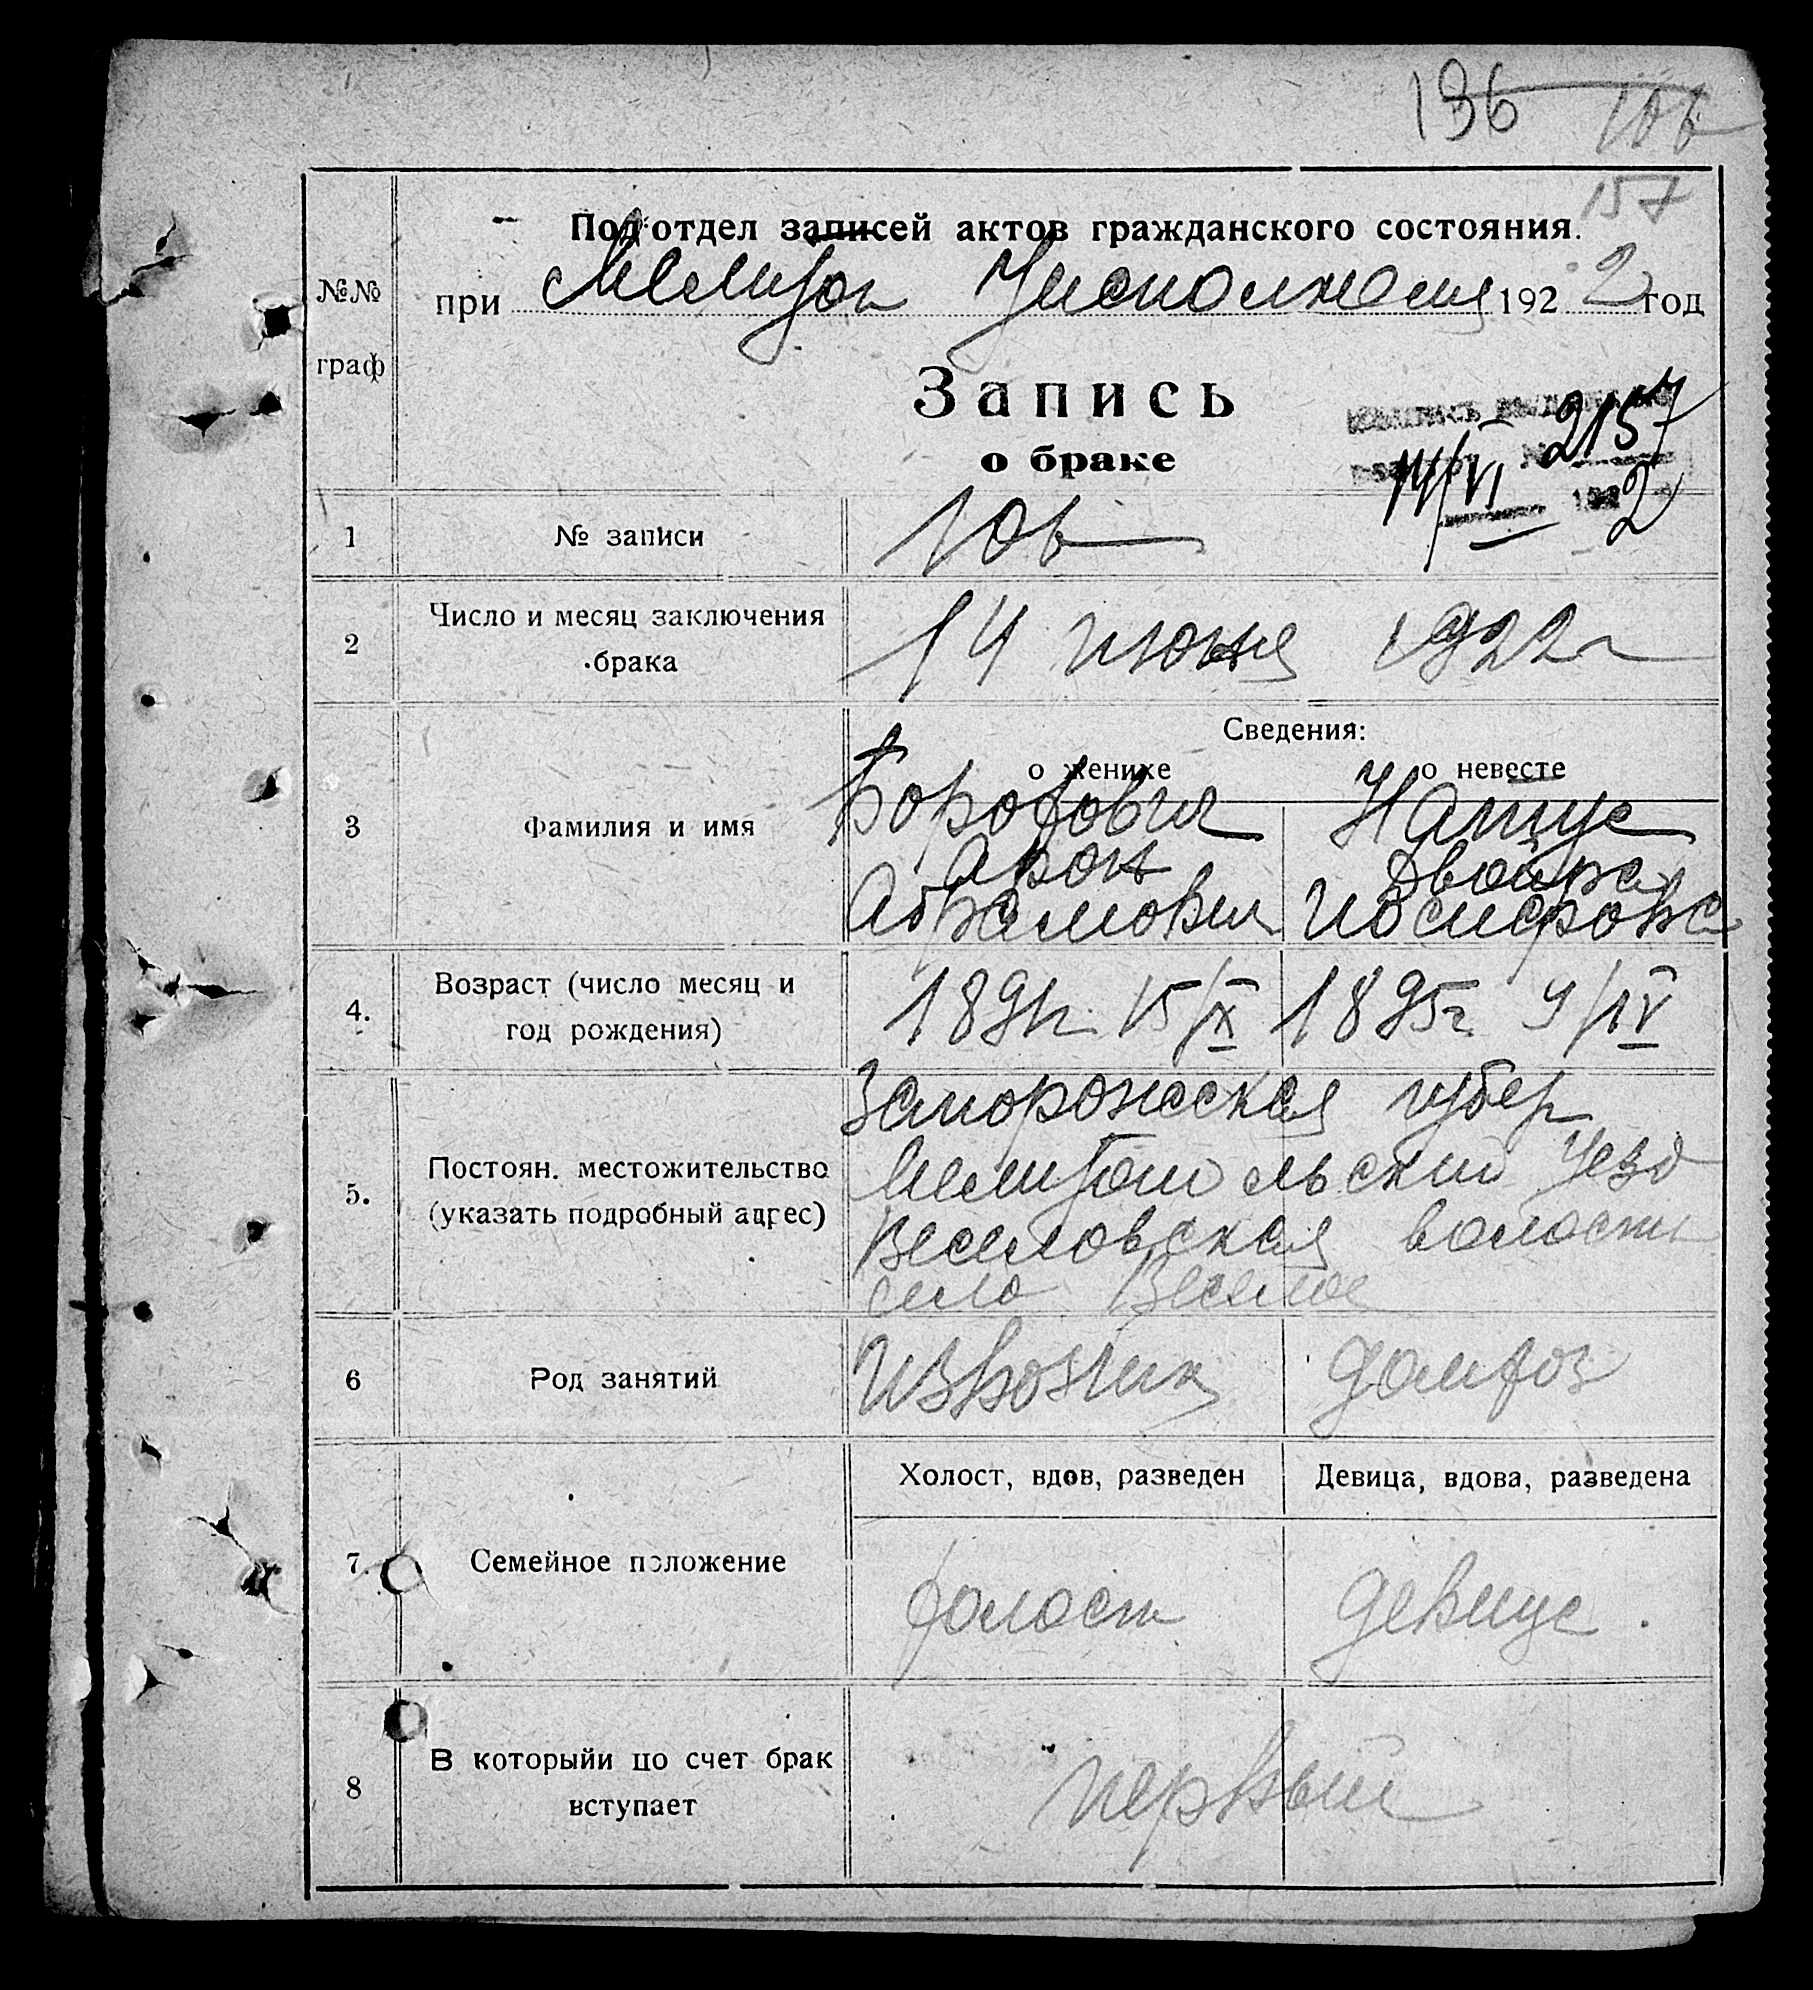 196 106
157
Подотдел записей актов гражданского состояния.
№№
граф
при Мелитоп Уисполкоме 1922 год
Запись
о браке
2157
14/VI 2
1 № записи 106
2 Число и месяц заключения
брака
14 июня 1922г
Сведения:
о женихе о невесте
3 Фамилия и имя
Арон Двойра
Абрамович Иосифовна
4. Возраст (число месяц и
год рождения)
15/IX 1895г 9/IV
Запорожская губер
5. Постоян. местожительство
(указать подробный адрес)
Мелитопольский Уезд
Веселовская волость
село Веселое
6 Род занятий Извозчик домхоз
Холост, вдов, разведен Девица, вдова, разведена
7. Семейное положение
холост девица.
8 В которыйи по счет брак
вступает
первый